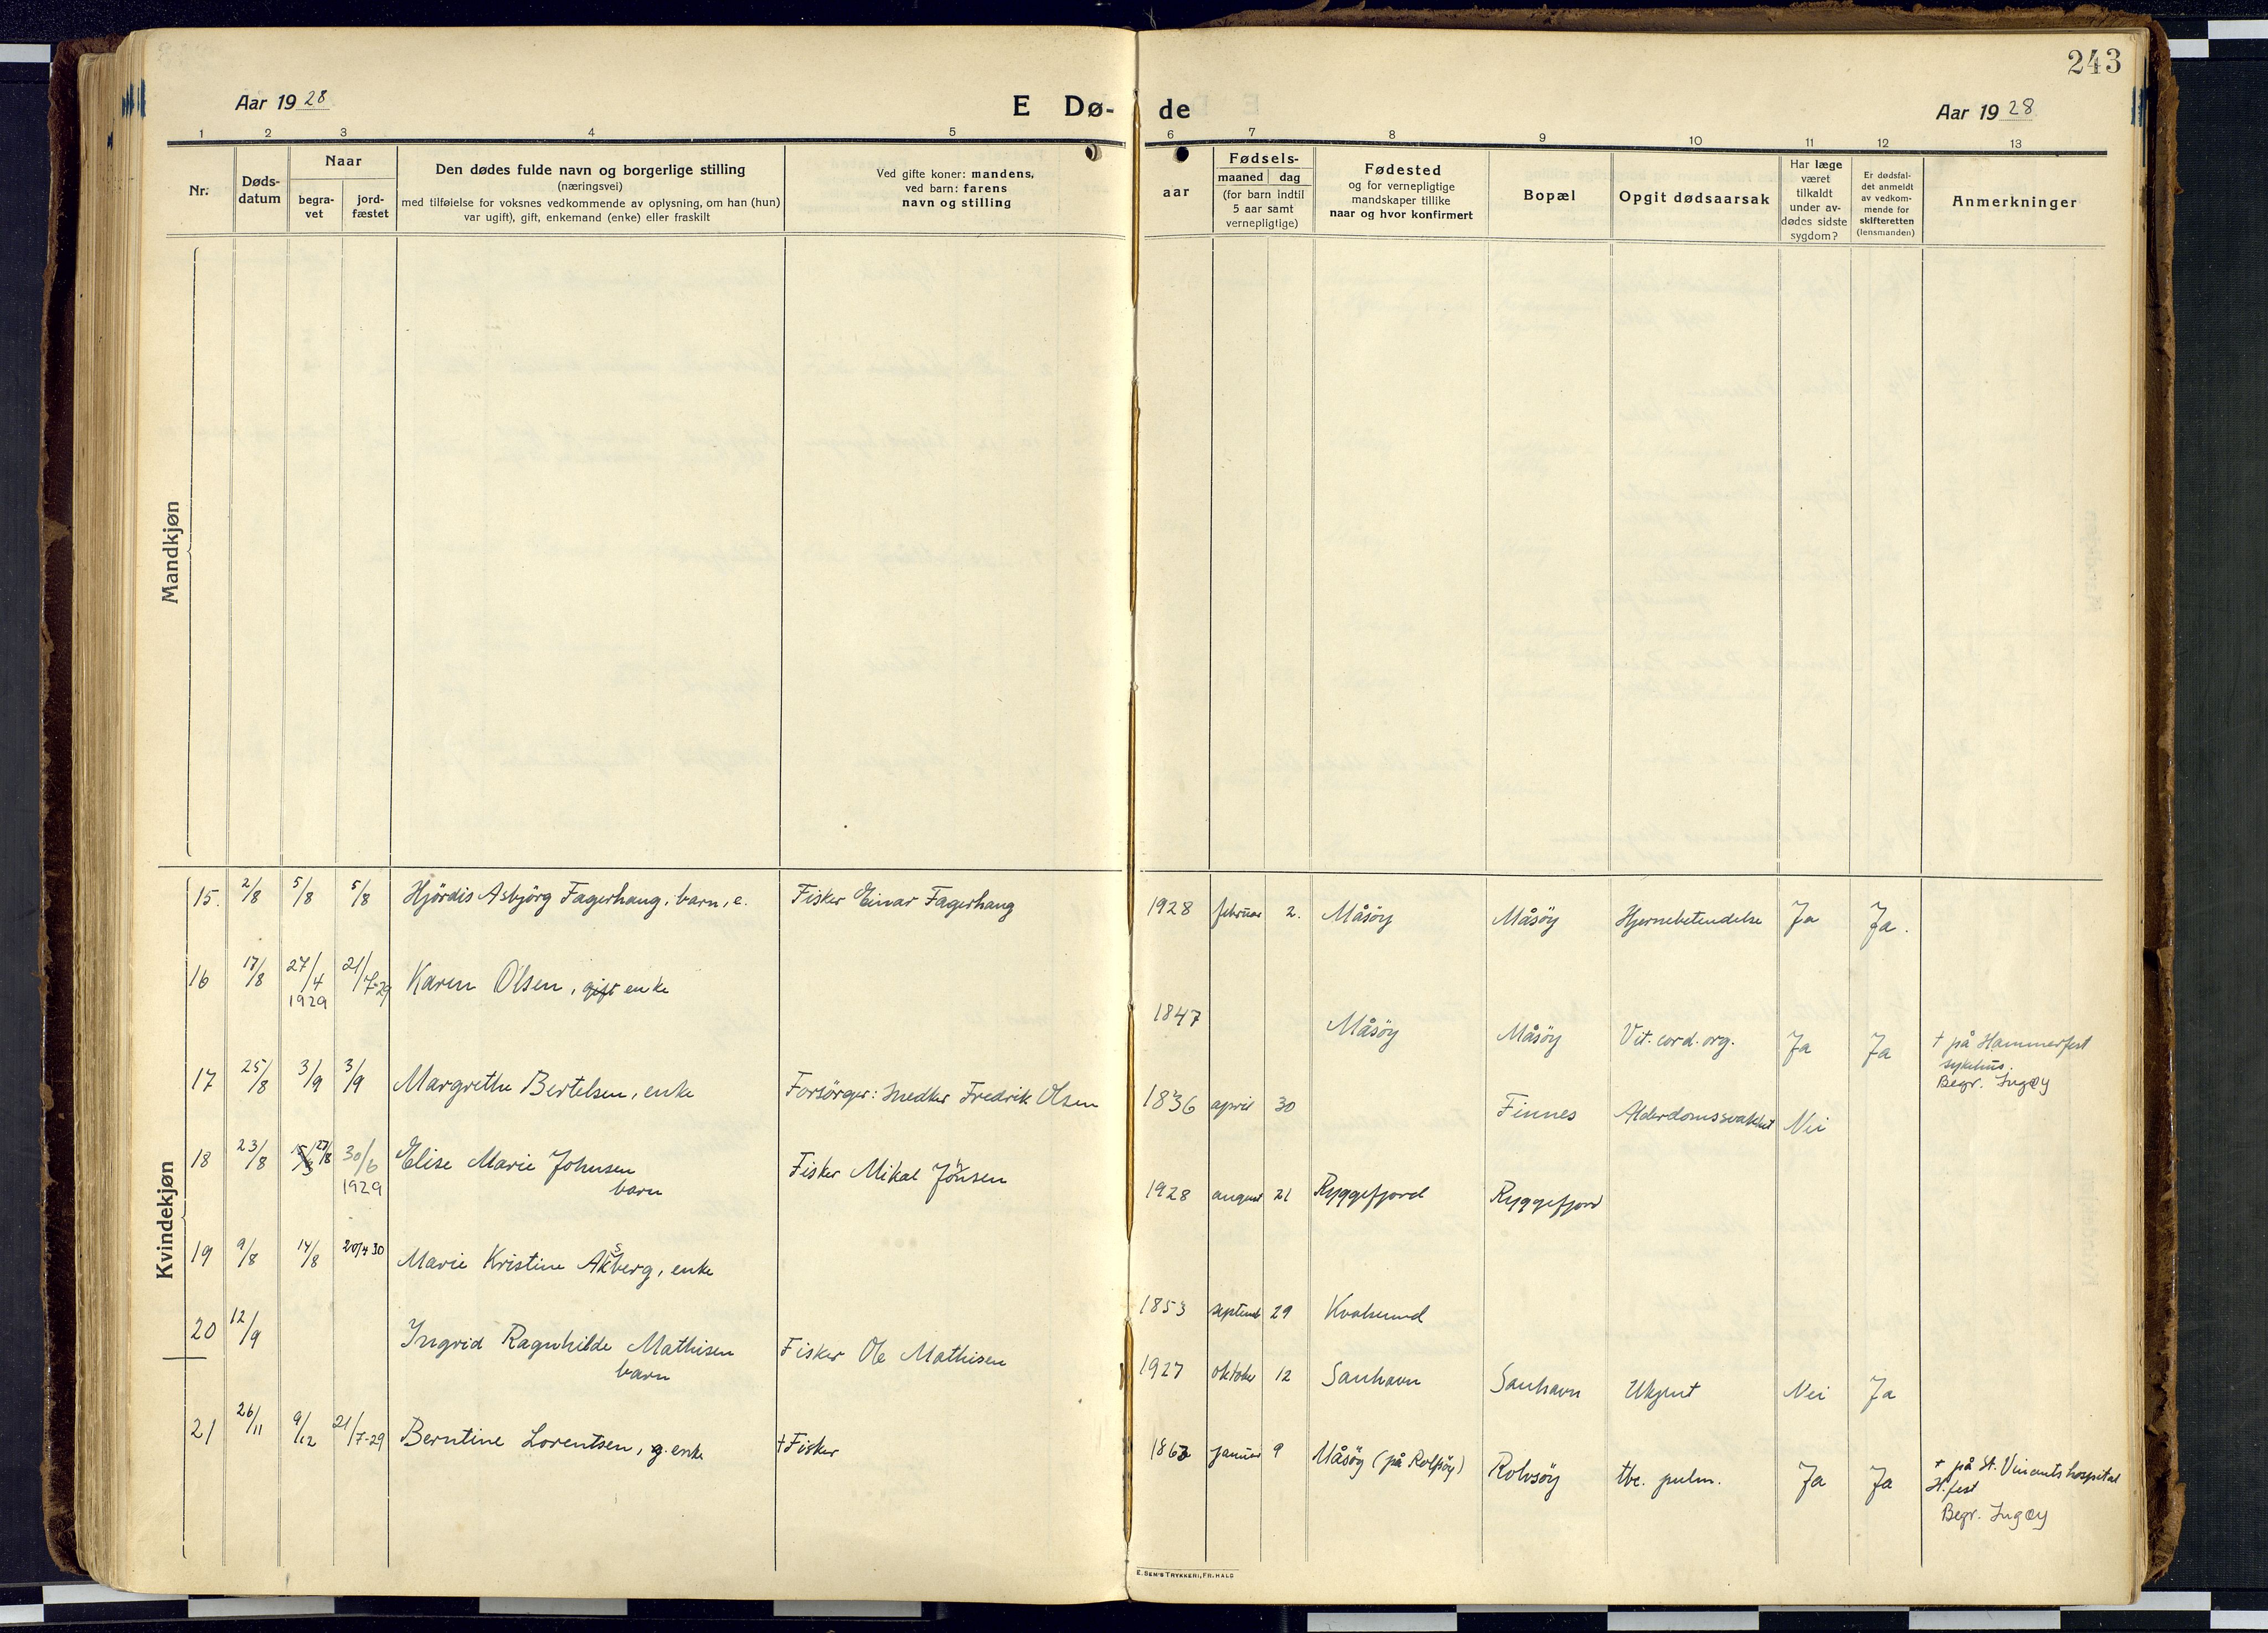 243
Aar 1928 E Dø- de Aar 1928
1 2 3 4 5 6 7 8 9 10 11 12 13
Nr.
Døds-
datum
Naar
begra-
vet
jord-
fæstet
Den dødes fulde navn og borgerlige stilling
(næringsvei)
med tilføielse for voksnes vedkommende av oplysning, om han (hun)
var ugift), gift, enkemand (enke) eller fraskilt
Ved gifte koner: mandens,
ved barn: farens
navn og stilling
aar
Fødsels-
maaned dag
(for barn indtil
5 aar samt
vernepligtige)
Fødested
og for vernepligtige
mandskaper tillike
naar og hvor konfirmert
Bopæl
Opgit dødsaarsak
Har læge
været
tilkaldt
under av-
dødes sidste
sygdom?
Er dødsfal-
det anmeldt
av vedkom-
mende for
skifteretten
(lensmanden)
Anmerkninger
Mandkjøn
Kvindekjøn
15. 2/8 5/8 5/8 Hjördis Asbjörg Fagerhaug, barn, e. Fisker Einar Fagerhaug 1928 februar 2. Måsöy Måsöy Hjernebetendelse Ja Ja.
16 17/8 27/4 1929 21/7-29 Karen Olsen, gift enke 1847 Måsöy Måsöy Vit. cord. org. Ja Ja † på Hammerfest
sykehus.
Begr. Ingøy
17 25/8 3/9 3/9 Margrethe Bertelsen, enke Forsörger: Snedker Fredrik Olsen 1836 april 30 Finnes Alderdomssvakhet Nei
18 23/8 27/8 30/6 1929 Elise Marie Johnsen
barn Fisker Mikal Johnsen 1928 august 21 Ryggefjord Ryggefjord
19 9/8 14/8 20/4 30 Marie Kristine Aksberg, enke 1853 septemb 29 Kvalsund
20 12/9 Ingrid Ragnhilde Mathisen
barn Fisker Ole Mathisen 1927 oktober 12 Sanhavn Sanhavn Ukjent Nei Ja
21 26/11 9/12 21/7-29 Berntine Lorentsen, g. enke † Fisker 1863 januar 9 Måsöy (på Rolfsöy) Rolvsöy tbc. pulm. Ja Ja † på St. Vincents hospital
H.fest
Begr. Ingøy
E. SEM'S TRYKKERI, FR.HALD